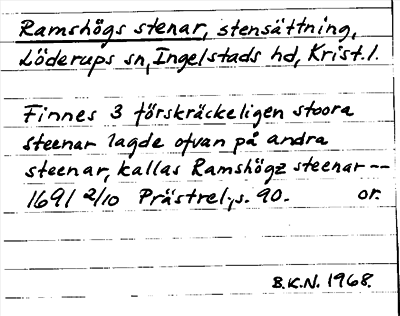 Ramshögs stenar, stensättning,
Löderups sn, Ingelstads hd, Krist. l.
Finnes 3 förskräckeligen stoora
steenar lagde ofvan på andra
steenar, kallas Ramshögz steenar --
1691 2/10 Prästrel., s. 90. or.
B.K.N. 1968.